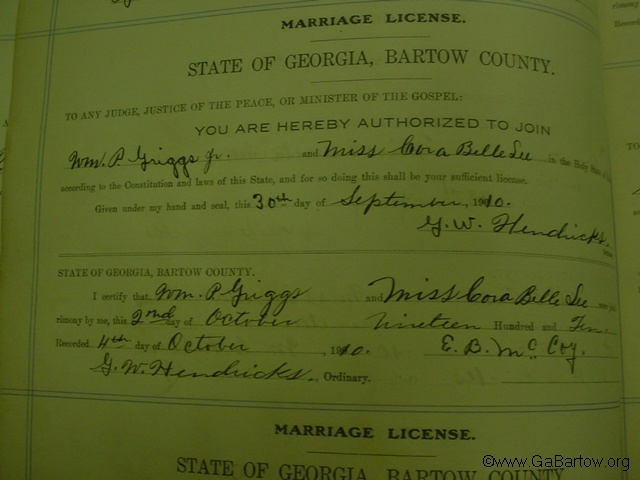 MARRIAGE LICENSE.
STATE OF GEORGIA, BARTOW COUNTY.
TO ANY JUDGE, JUSTICE OF THE PEACE, OR MINISTER OF THE GOSPEL:
YOU ARE HEREBY AUTHORIZED TO JOIN
Wm. P. Griggs Jr. and Miss Cora Belle Lee in the Holy State of
according to the Constitution and laws of this State, and for so doing this shall be your sufficient license.
Given under my hand and seal, this 30th day of September, 1910.
G. W. Hendricks.
STATE OF GEORGIA, BARTOW COUNTY.
I certify that Wm. P. Griggs and Miss Cora Belle Lee were
rimony by me, this 2nd day of October Nineteen Hundred and Ten
Recorded 4th day of October, 1910. E. B. McCoy.
G. W. Hendricks., Ordinary.
MARRIAGE LICENSE.
STATE OF GEORGIA, BARTOW COUNTY
©www.GaBartow.org